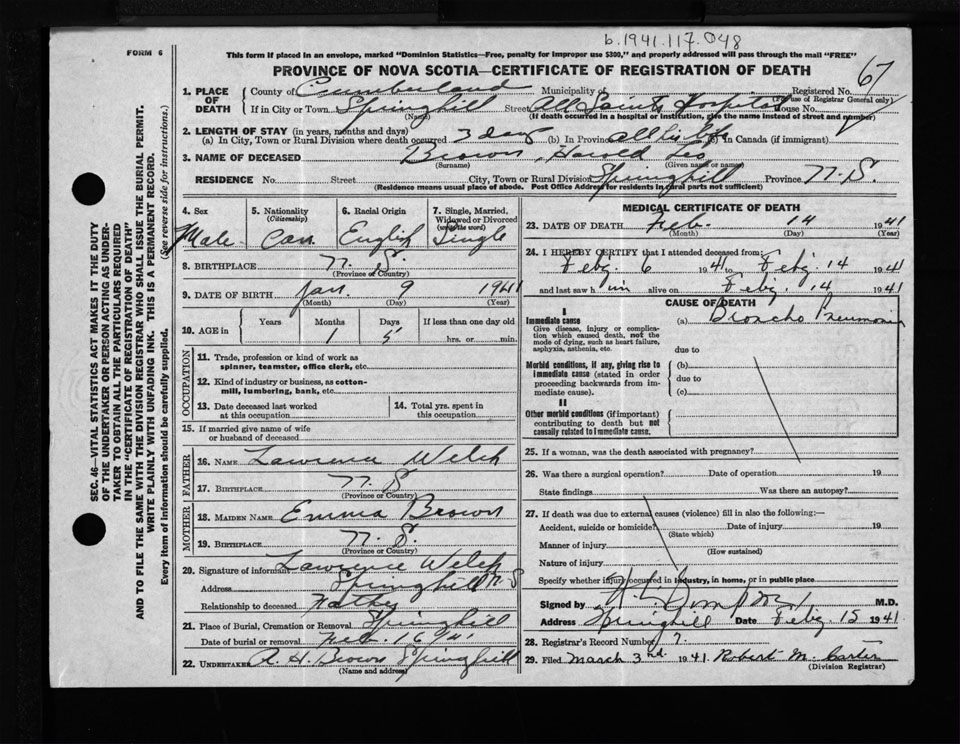 b.1941.117.048
FORM 6
This form if placed in an envelope, marked "Dominion Statistics—Free, penalty for improper use $300," and properly addressed will pass through the mail "FREE"
PROVINCE OF NOVA SCOTIA—CERTIFICATE OF REGISTRATION OF DEATH
67
1. PLACE OF DEATH
County of Cumberland Municipality of Registered No.
(For use of Registrar General only)
If in City or Town Springhill Street All Saints Hospital House No.
(Name) (If death occurred in a hospital or institution, give the name instead of street and number)
2. LENGTH OF STAY (in years, months and days)
(a) In City, Town or Rural Division where death occurred 3 days (b) In Province all his life (c) In Canada (if immigrant)
3. NAME OF DECEASED Brown, Harold Leo
(Surname) (Given name or names)
RESIDENCE No. Street City, Town or Rural Division Springhill Province N.S.
(Residence means usual place of abode. Post Office Address for residents in rural parts not sufficient)
4. Sex 5. Nationality (Citizenship) 6. Racial Origin 7. Single, Married, Widowed or Divorced (write the word)
Male Can English Single
8. BIRTHPLACE N. S.
(Province or Country)
9. DATE OF BIRTH Jan. 9 1941
(Month) (Day) (Year)
10. AGE in Years Months Days If less than one day old
1 5 hrs. or min.
OCCUPATION
11. Trade, profession or kind of work as spinner, teamster, office clerk, etc.
12. Kind of industry or business, as cotton-mill, lumbering, bank, etc.
13. Date deceased last worked at this occupation
14. Total yrs. spent in this occupation
15. If married give name of wife or husband of deceased
FATHER
16. NAME Lawrence Welch
17. BIRTHPLACE N. S.
(Province or Country)
MOTHER
18. MAIDEN NAME Emma Brown
19. BIRTHPLACE N. S.
(Province or Country)
20. Signature of informant Lawrence Welch
Address Springhill N.S
Relationship to deceased Father
21. Place of Burial, Cremation or Removal Springhill
Date of burial or removal Feb. 16 1941
22. UNDERTAKER A. H. Brown Springhill
(Name and address)
MEDICAL CERTIFICATE OF DEATH
23. DATE OF DEATH Feb. 14 1941
(Month) (Day) (Year)
24. I HEREBY CERTIFY that I attended deceased from
Feby. 6 1941 to Feby. 14 1941
and last saw him alive on Feby. 14 1941
CAUSE OF DEATH
I
Immediate cause (a) Broncho Pneumonia
Give disease, injury or complication which caused death, not the mode of dying, such as heart failure, asphyxia, asthenia, etc.
due to
Morbid conditions, if any, giving rise to immediate cause (stated in order proceeding backwards from immediate cause).
(b)
due to
(c)
II
Other morbid conditions (if important) contributing to death but not causally related to immediate cause.
25. If a woman, was the death associated with pregnancy?
26. Was there a surgical operation? Date of operation 19
State findings Was there an autopsy?
27. If death was due to external causes (violence) fill in also the following:—
Accident, suicide or homicide? Date of injury 19
(State which)
Manner of injury
(How sustained)
Nature of injury
Specify whether injury occurred in industry, in home, or in public place
Signed by M.D.
Address Springhill Date Feby. 15 1941
28. Registrar's Record Number 7.
29. Filed March 3rd 1941 Robert M. Carter
(Division Registrar)
SEC. 46—VITAL STATISTICS ACT MAKES IT THE DUTY
OF THE UNDERTAKER OR PERSON ACTING AS UNDER-
TAKER TO OBTAIN ALL THE PARTICULARS REQUIRED
IN THE "CERTIFICATE OF REGISTRATION OF DEATH"
AND TO FILE THE SAME WITH THE DIVISION REGISTRAR WHO SHALL ISSUE THE BURIAL PERMIT.
WRITE PLAINLY WITH UNFADING INK. THIS IS A PERMANENT RECORD.
Every item of information should be carefully supplied. (See reverse side for instructions.)